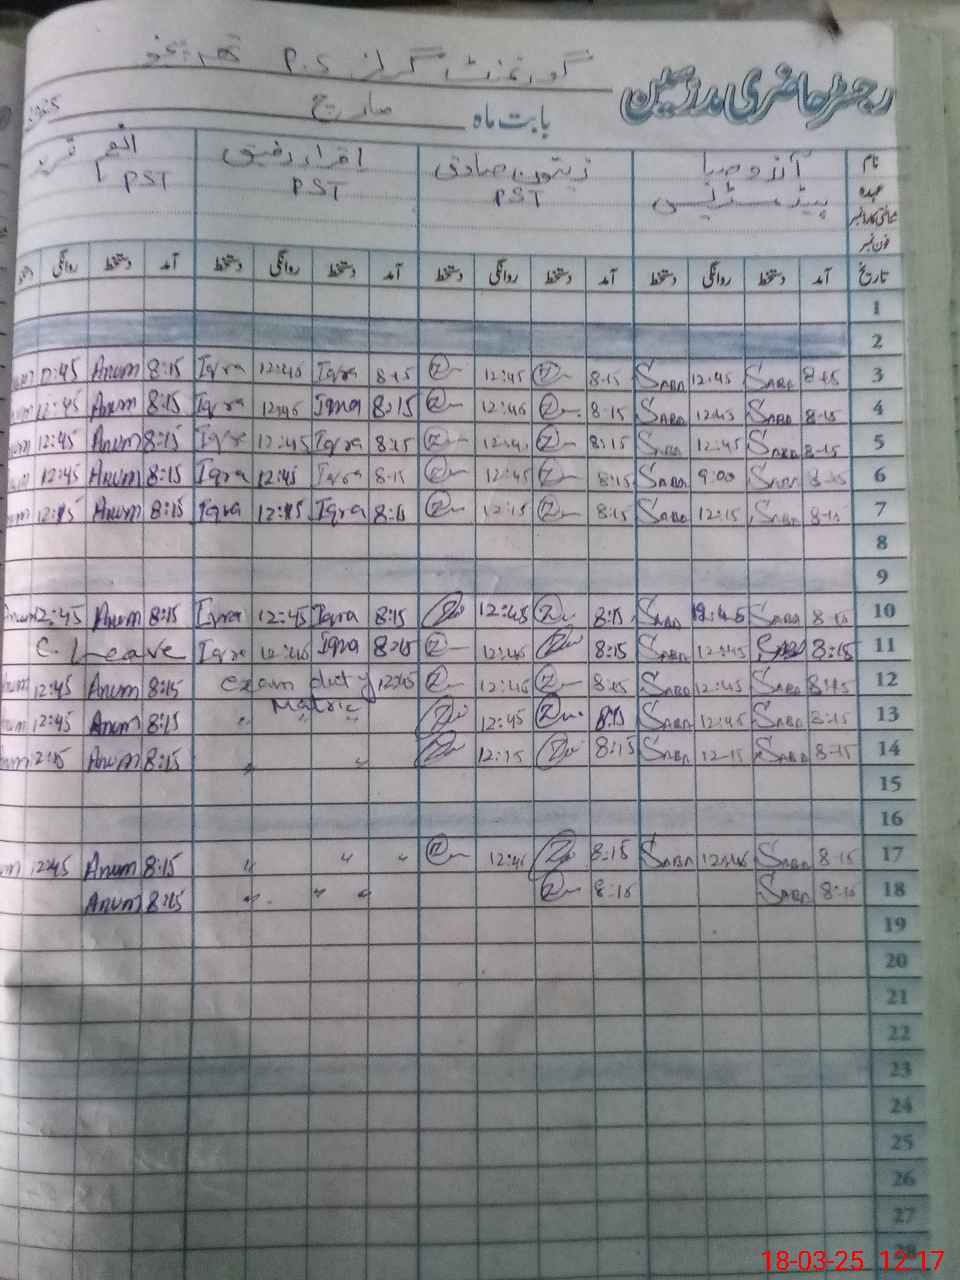 رجسٹر حاضری مدرسین گورنمنٹ گرلز P.S
بابت ماہ مارچ 2025
نام آرزو صبا زیتون صادق اقراء رفیق انعم
عہدہ ہیڈ مسٹریس PST PST PST
شناختی کارڈ نمبر
فون نمبر
تاریخ آمد دستخط روانگی دستخط آمد دستخط روانگی دستخط آمد دستخط روانگی دستخط آمد دستخط روانگی
1
2
3 8-15 SABA 12:45 SABA 8-15 12:45 8-15 Iqra 12:45 Iqra 8:15 Anum 12:45
4 8-15 SABA 12:45 SABA 8-15 12:45 8:15 Iqra 12:45 Iqra 8:15 Anum 12:45
5 8-15 SABA 12:45 SABA 8:15 12:45 8:15 Iqra 12:45 Iqra 8:15 Anum 12:45
6 8-15 SABA 9:00 SABA 8:15 12:45 8-15 Iqra 12:45 Iqra 8:15 Anum 12:45
7 8-15 SABA 12:15 SABA 8:15 12:15 8:15 Iqra 12:15 Iqra 8:15 Anum 12:15
8
9
10 8-15 SABA 12:45 SABA 8:15 12:45 8:15 Iqra 12:45 Iqra 8:15 Anum 12:45
11 8:15 SABA 12:45 SABA 8:15 12:45 8:15 Iqra 12:45 Iqra C. Leave
12 8:15 SABA 12:45 SABA 8:15 12:45 12:45 exam duty 8:15 Anum 12:45
13 8:15 SABA 12:45 SABA 8:15 12:45 Matric " 8:15 Anum 12:45
14 8-15 SABA 12-15 SABA 8:15 12:15 " " 8:15 Anum 12:15
15
16
17 8-15 SABA 12:45 SABA 8:15 12:45 " " " 8:15 Anum 12:45
18 8:15 SABA 8:15 " " " 8:15 Anum
19
20
21
22
23
24
25
26
27
28
18-03-25 12:17